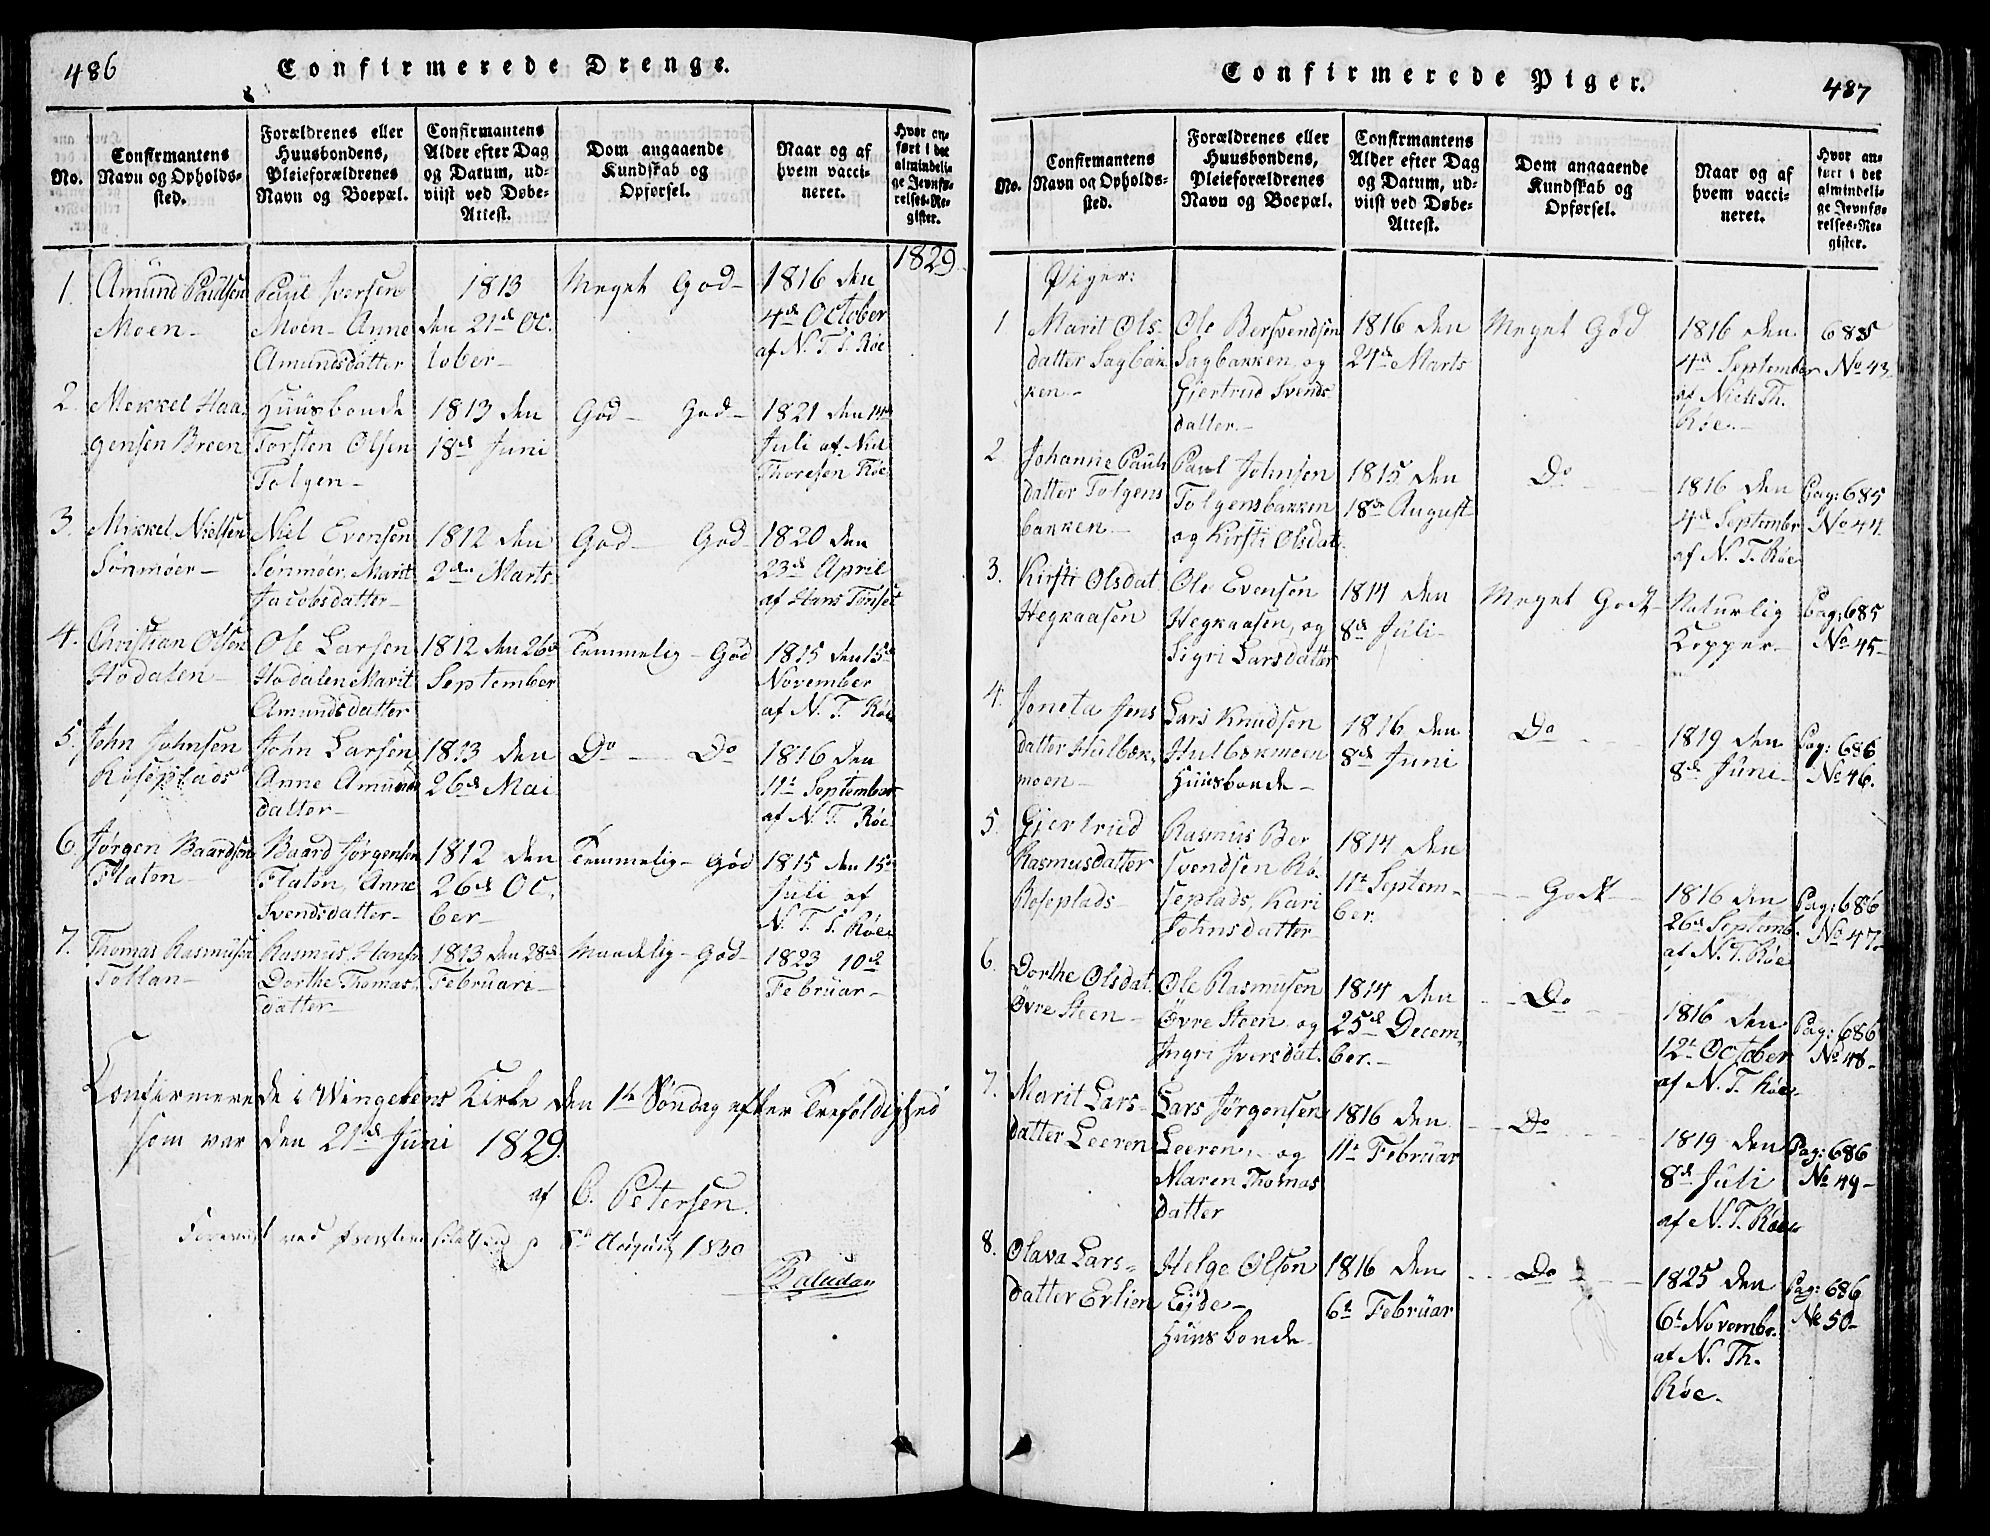 486
Confirmerede Drenge.
No.
Confirmantens
Navn og Opholds-
sted.
Forældrenes eller
Huusbondens,
Pleieforældrenes
Navn og Boepæl.
Confirmantens
Alder efter Dag
og Datum, ud-
viist ved Døbe-
Attest.
Dom angaaende
Kundskab og
Opførsel.
Naar og af
hvem vacci-
neret.
Hvor an-
ført i det
almindeli-
ge Jevnfø-
relses-Re-
gister.
1829.
1.
Amund Paulsen
Moen-
Paul Iversen
Moen- Anne
Amundsdatter
1813
den 21de Oc.
tober-
Meget God-
1816 den
4de October
af N. T. S. Røe
2.
Mekkel Haa-
gensen Breen
Huusbonde
Torsten Olsen
Tolgen-
1813 den
18de Juni
God- God-
1821 den 14de
Juli af Niel
Thoresen Røe
3.
Mikkel Nielsen
Sönmöer-
Niel Evensen
Senmöer, Marit
Jacobsdatter-
1812 den
2den Marts
God- God
1820 den
23de April
af Hans Tønset
4.
Christian Olsen
Hodalen-
Ole Larsen
Hodalen Marit
Amundsdatter
1812 den 26de
September
Temmelig- God
1815 den 15de
November
af N. T. Røe
5.
John Johnsen
Roseplads
John Larsen,
Anne Amunds
datter-
1813 den
26de Mai
Do Do
1816 den
11te September
af N. T. Røe
6
Jørgen Baardsen
Flaten
Baard Jørgensen
Flaten, Anne
Svendsdatter-
1812 den
26de Oc.
ber-
Temmelig- God
1815 den 15de
Juli af
N. T. S. Røe
7.
Thomas Rasmusen
Tollan-
Rasmus Hansen
Dorthe Thomas
datter-
1813 den 28de
Februari-
Maadelig- God-
1823 10de
Februar-
Confirmerede i Wingelens Kirke den 1ste Søndag efter Trefoldighed
som var den 21de Juni 1829.
af C. Petersen.
August 1830
487
Confirmerede Piger.
No.
Confirmantens
Navn og Opholds-
sted.
Forældrenes eller
Huusbondens,
Pleieforældrenes
Navn og Boepæl.
Confirmantens
Alder efter Dag
og Datum, ud-
viist ved Døbe-
Attest.
Dom angaaende
Kundskab og
Opførsel.
Naar og af
hvem vacci-
neret.
Hvor an-
ført i det
almindeli-
ge Jevnfø-
relses-Re-
gister.
Piger:
1
Marit Ols-
datter Sagbak
ken-
Ole Bersvendsen
Sagbakken, og
Gjertrud Svends
datter.-
1816 den
24de Marts
Meget God
1816 den
4de September
af Niels Th.
Röe.-
685
No 43.
2
Johanne Pauls
datter Tolgens
bakken-
Paul Johnsen
Tolgensbakken
og Kirsti Olsdat.
1815 den
18de August
Do
1816 den
4de Septembr
af N. T. Røe
Pag: 685
No 44.
3.
Kirsti Olsdat
Hegraasen
Ole Evensen
Hegraasen, og
Sigri Larsdatter
1814 den
8de Juli-
Meget Godt-
Naturlig
Kopper-
Pag: 685
No 45-
4.
Joneta Jens
datter Hulbæk,
moen-
Lars Knudsen
Hulbækmoen
Huusbonde-
1816 den
8de Juni
Do
1819 den
8de Juni-
Pag: 686
No 46.
5.
Gjertrud
Rasmusdatter
Roseplads-
Rasmus Ber
svendsen Rø.
seplads, Kari
Johnsdatter
1814 den
11te Septem-
ber.
Godt
1816 den
26de Septemb.
af N. T. Røe
Pag: 686
No 47.
6.
Dorthe Olsdat.
Övre Steen-
Ole Rasmusen
Övre Steen og
Ingri Iversdat.
1814 den
25de Decem,
ber.-
Do
1816 den
12te October
af N. T. Røe
Pag: 686
No 48-
7.
Marit Lars-
datter Leeren
Lars Jørgensen
Leeren,- og
Maren Thomas
datter
1816 den
11te Februar
Do
1819 den
8de Juli
af N. T. Røe
Pag: 686
No 49-
8.
Olava Lars-
datter Erlien
Helge Olsen
Eide-
Huusbonde-
1816 den
6te Februar
Do
1825 den
6te Novembr.
af N. Th.
Røe.
Pag: 686
No 50-